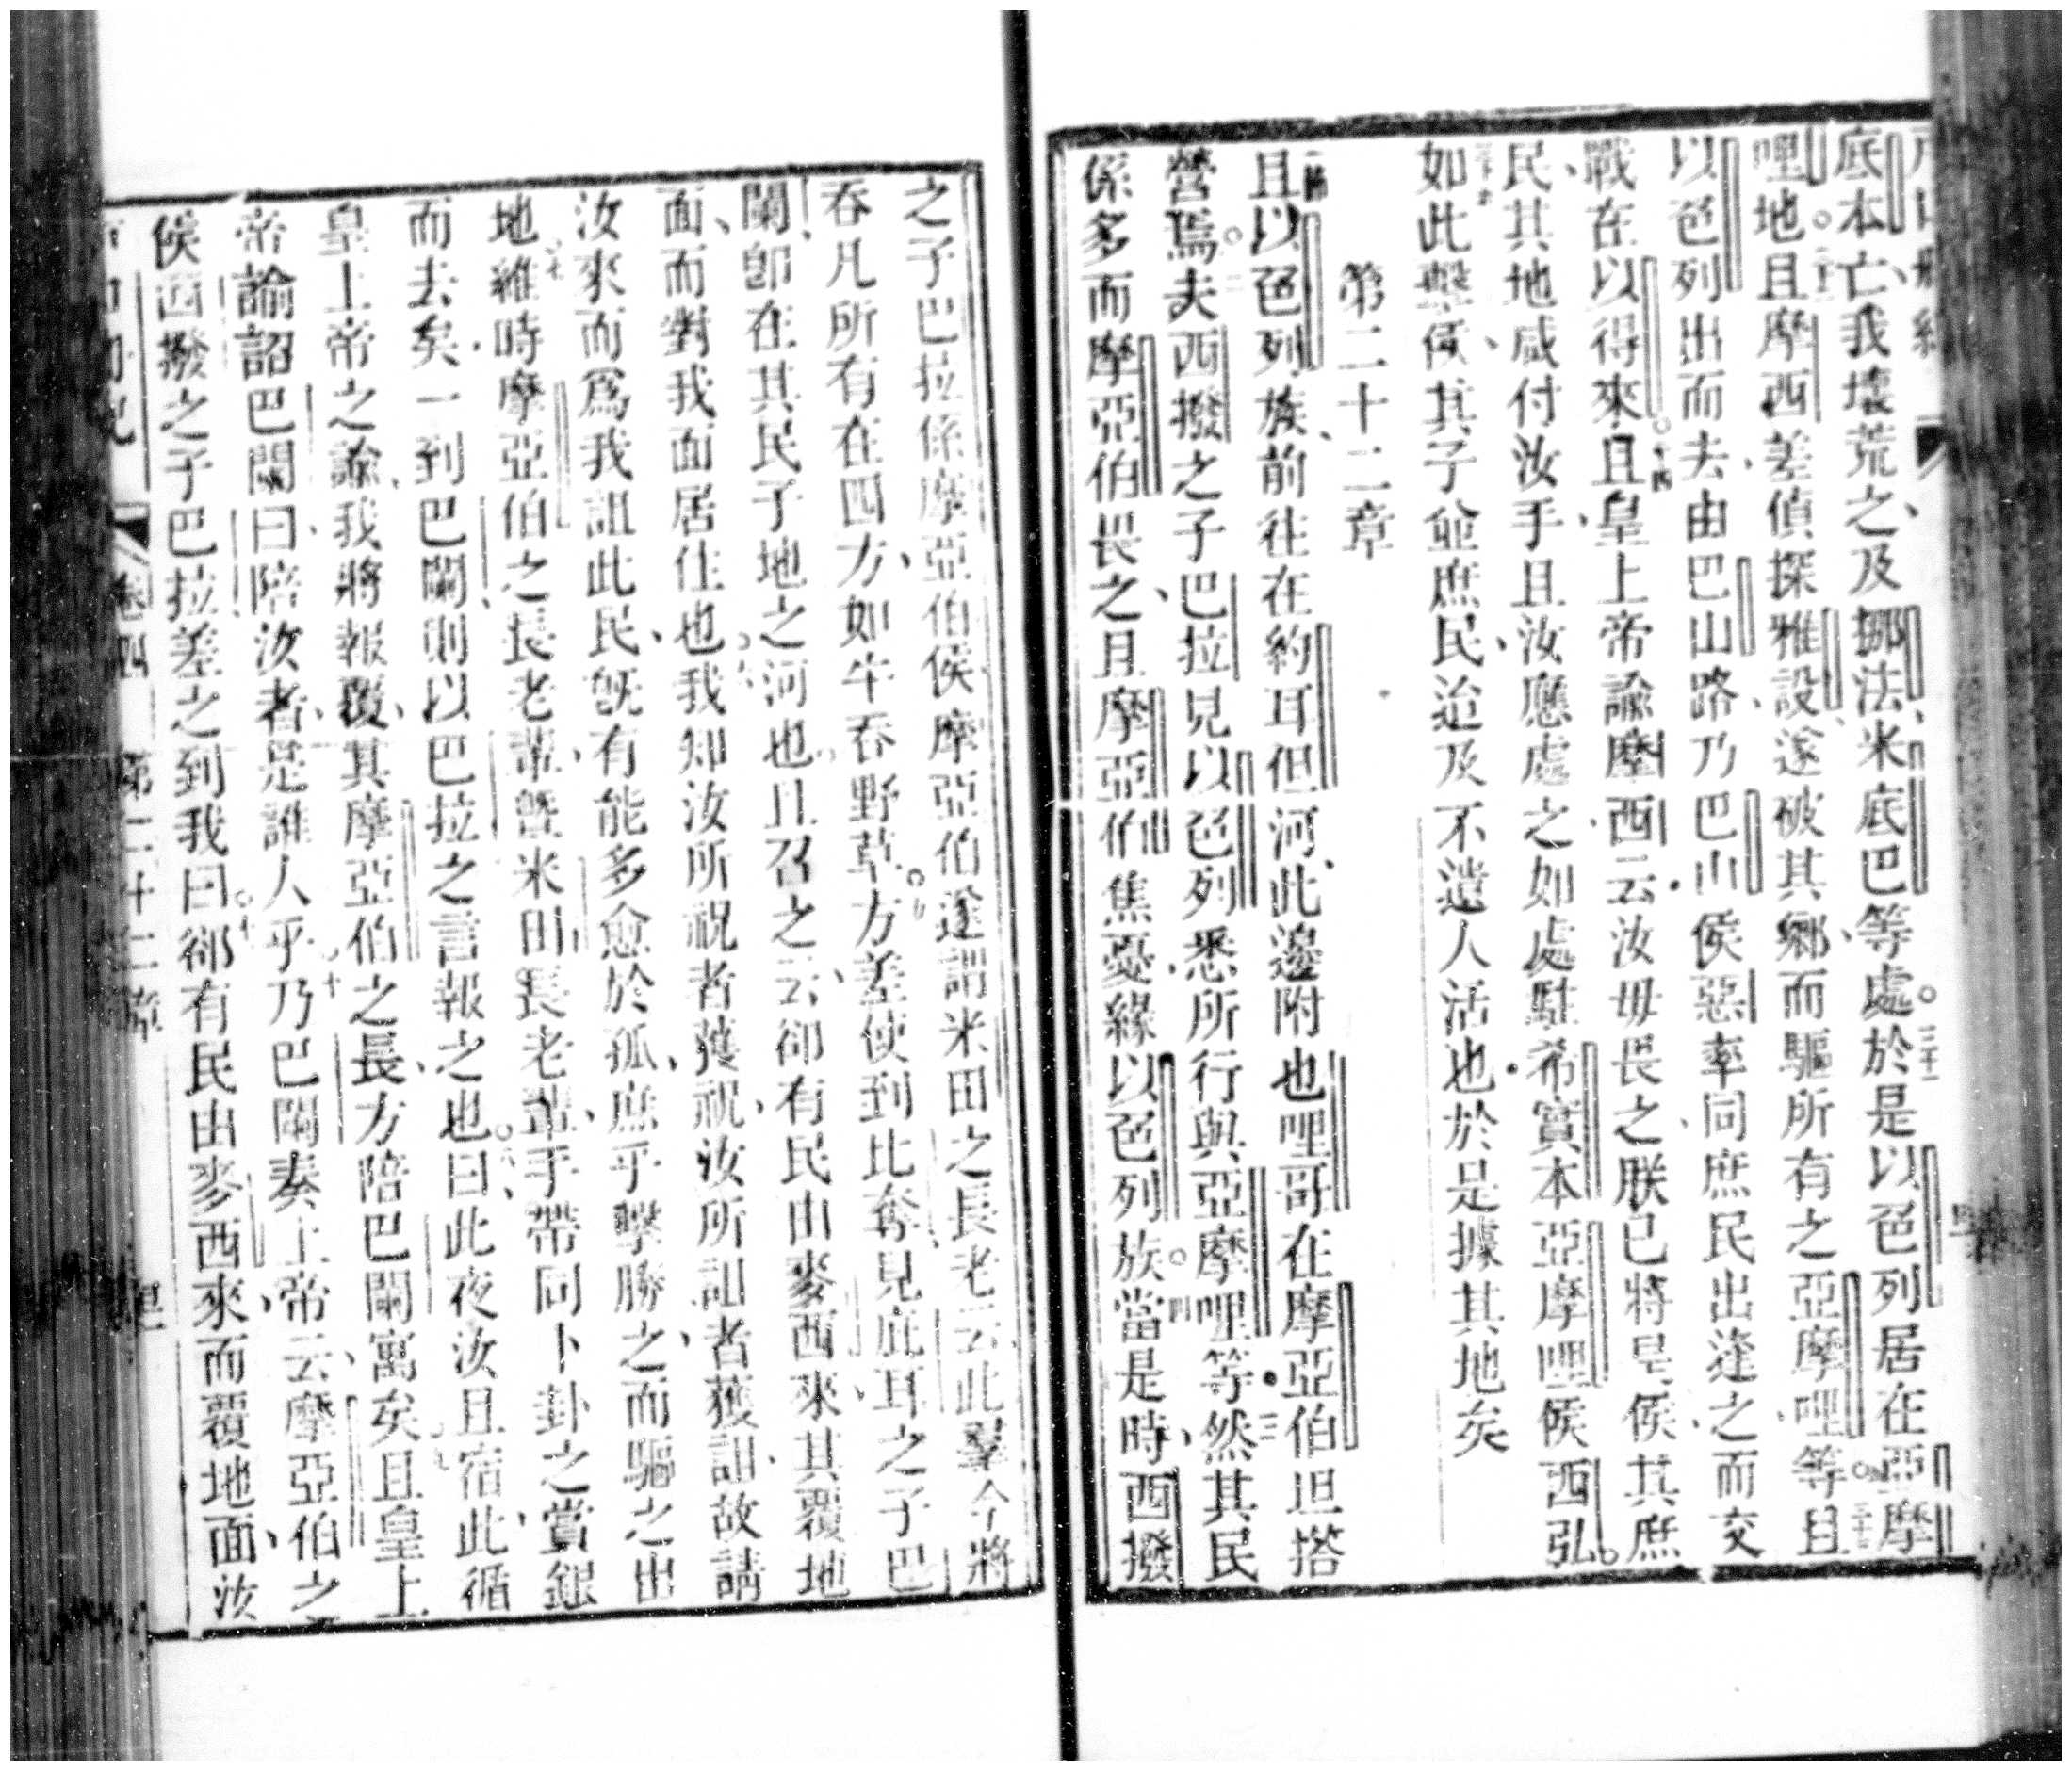 底本亡我壞荒之及挪法米底巴等處。三十一於是以色列居在亞摩
哩地。三十二且摩西差偵探雅設遂破其鄉而驅所有之亞摩哩等。三十三且
以色列出而去由巴山路乃巴山侯惡率同庶民出逢之而交
戰在以得來。三十四且皇上帝諭摩西云汝毋畏之朕已將是侯其庶
民其地咸付汝手且汝應處之如處駐希實本亞摩哩侯西弘。
三十五如此擊侯其子並庶民迨及不遺人活也於是據其地矣
第二十二章
一節且以色列族前往在約耳但河此邊附也哩哥在摩亞伯坦塔
營焉。二夫西撥之子巴拉見以色列悉所行與亞摩哩等三然其民
係多而摩亞伯畏之且摩亞伯焦憂緣以色列族。四當是時西撥
之子巴拉係摩亞伯侯摩亞伯遂謂米田之長老云此羣今將
吞凡所有在四方如牛吞野草。五方差使到比奪見庇耳之子巴
闌卽在其民子地之河也且召之云卻有民由麥西來其覆地
面而對我面居住也。六我知汝所祝者獲祝汝所詛者獲詛故請
汝來而為我詛此民旣有能多愈於孤庶乎擊勝之而驅之出
地。七維時摩亞伯之長老曁米田長老輩手帶同卜卦之賞銀
而去矣一到巴闌則以巴拉之言報之也。八曰此夜汝且宿此循
皇上帝之諭我將報覆其摩亞伯之長方陪巴闌寓矣九且皇上
帝諭詔巴闌曰陪汝者是誰人乎十乃巴闌奏上帝云摩亞伯之
侯西撥之子巴拉差之到我曰。十一卻有民由麥西來而覆地面汝
卷四 第二十二章